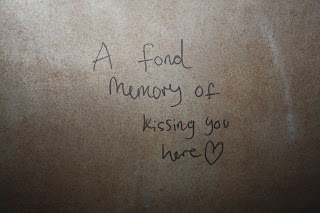 A fond
Memory of
kissing you
here♡